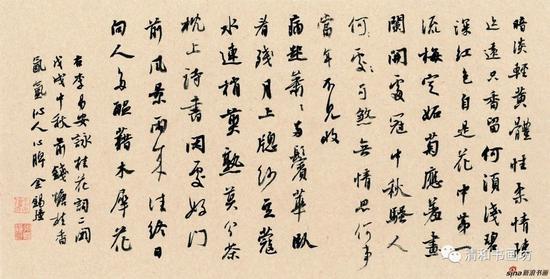 暗淡輕黃體性柔情疎
迹遠只香留何須淺碧
深紅色自是花中第一
流梅定妬菊應羞畫
闌開處冠中秋騷人
何處可煞無情思何事
當年不見收
病起蕭蕭兩鬢華臥
看殘月上牕紗豆蔻
水連梢煎熟莫分茶
枕上詩書閑處好門
前風景雨來佳終日
向人多醞藉木犀花
右李易安詠桂花詞二闋
戊戌中秋前錢塘桂香
氤氳沁人心脾 金錫
清和书画坊
sina 新浪书画